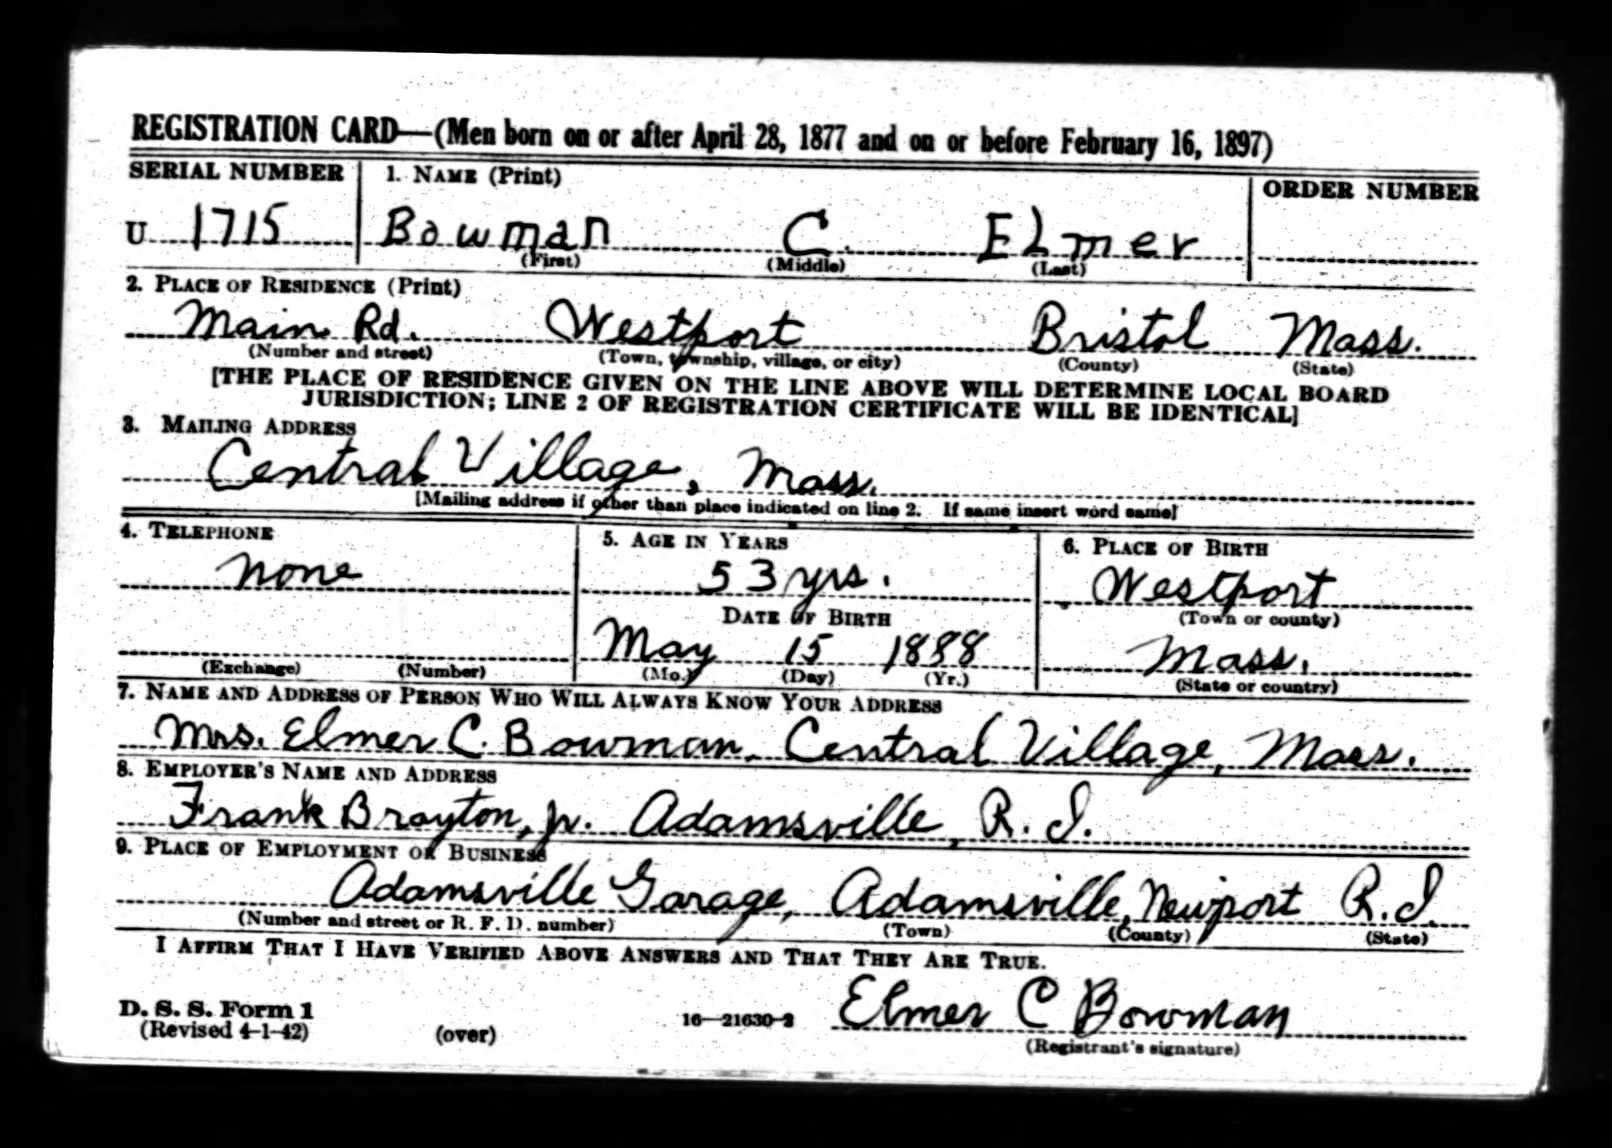 REGISTRATION CARD—(Men born on or after April 28, 1877 and on or before February 16, 1897)
SERIAL NUMBER 1. NAME (Print) ORDER NUMBER
U 1715 Bowman C. Elmer
(First) (Middle) (Last)
2. PLACE OF RESIDENCE (Print)
Main Rd. Westport Bristol Mass.
(Number and street) (Town, township, village, or city) (County) (State)
[THE PLACE OF RESIDENCE GIVEN ON THE LINE ABOVE WILL DETERMINE LOCAL BOARD
JURISDICTION; LINE 2 OF REGISTRATION CERTIFICATE WILL BE IDENTICAL]
3. MAILING ADDRESS
Central Village, Mass.
[Mailing address if other than place indicated on line 2. If same insert word same]
4. TELEPHONE 5. AGE IN YEARS 6. PLACE OF BIRTH
none 53 yrs. Westport
DATE OF BIRTH (Town or county)
May 15 1888 Mass.
(Exchange) (Number) (Mo.) (Day) (Yr.) (State or country)
7. NAME AND ADDRESS OF PERSON WHO WILL ALWAYS KNOW YOUR ADDRESS
Mrs. Elmer C. Bowman, Central Village, Mass.
8. EMPLOYER'S NAME AND ADDRESS
Frank Brayton, Jr. Adamsville, R. I.
9. PLACE OF EMPLOYMENT OR BUSINESS
Adamsville Garage, Adamsville, Newport R.I.
(Number and street or R. F. D. number) (Town) (County) (State)
I AFFIRM THAT I HAVE VERIFIED ABOVE ANSWERS AND THAT THEY ARE TRUE.
D. S. S. Form 1
(Revised 4-1-42) (over) 16—21630-2 Elmer C Bowman
(Registrant's signature)